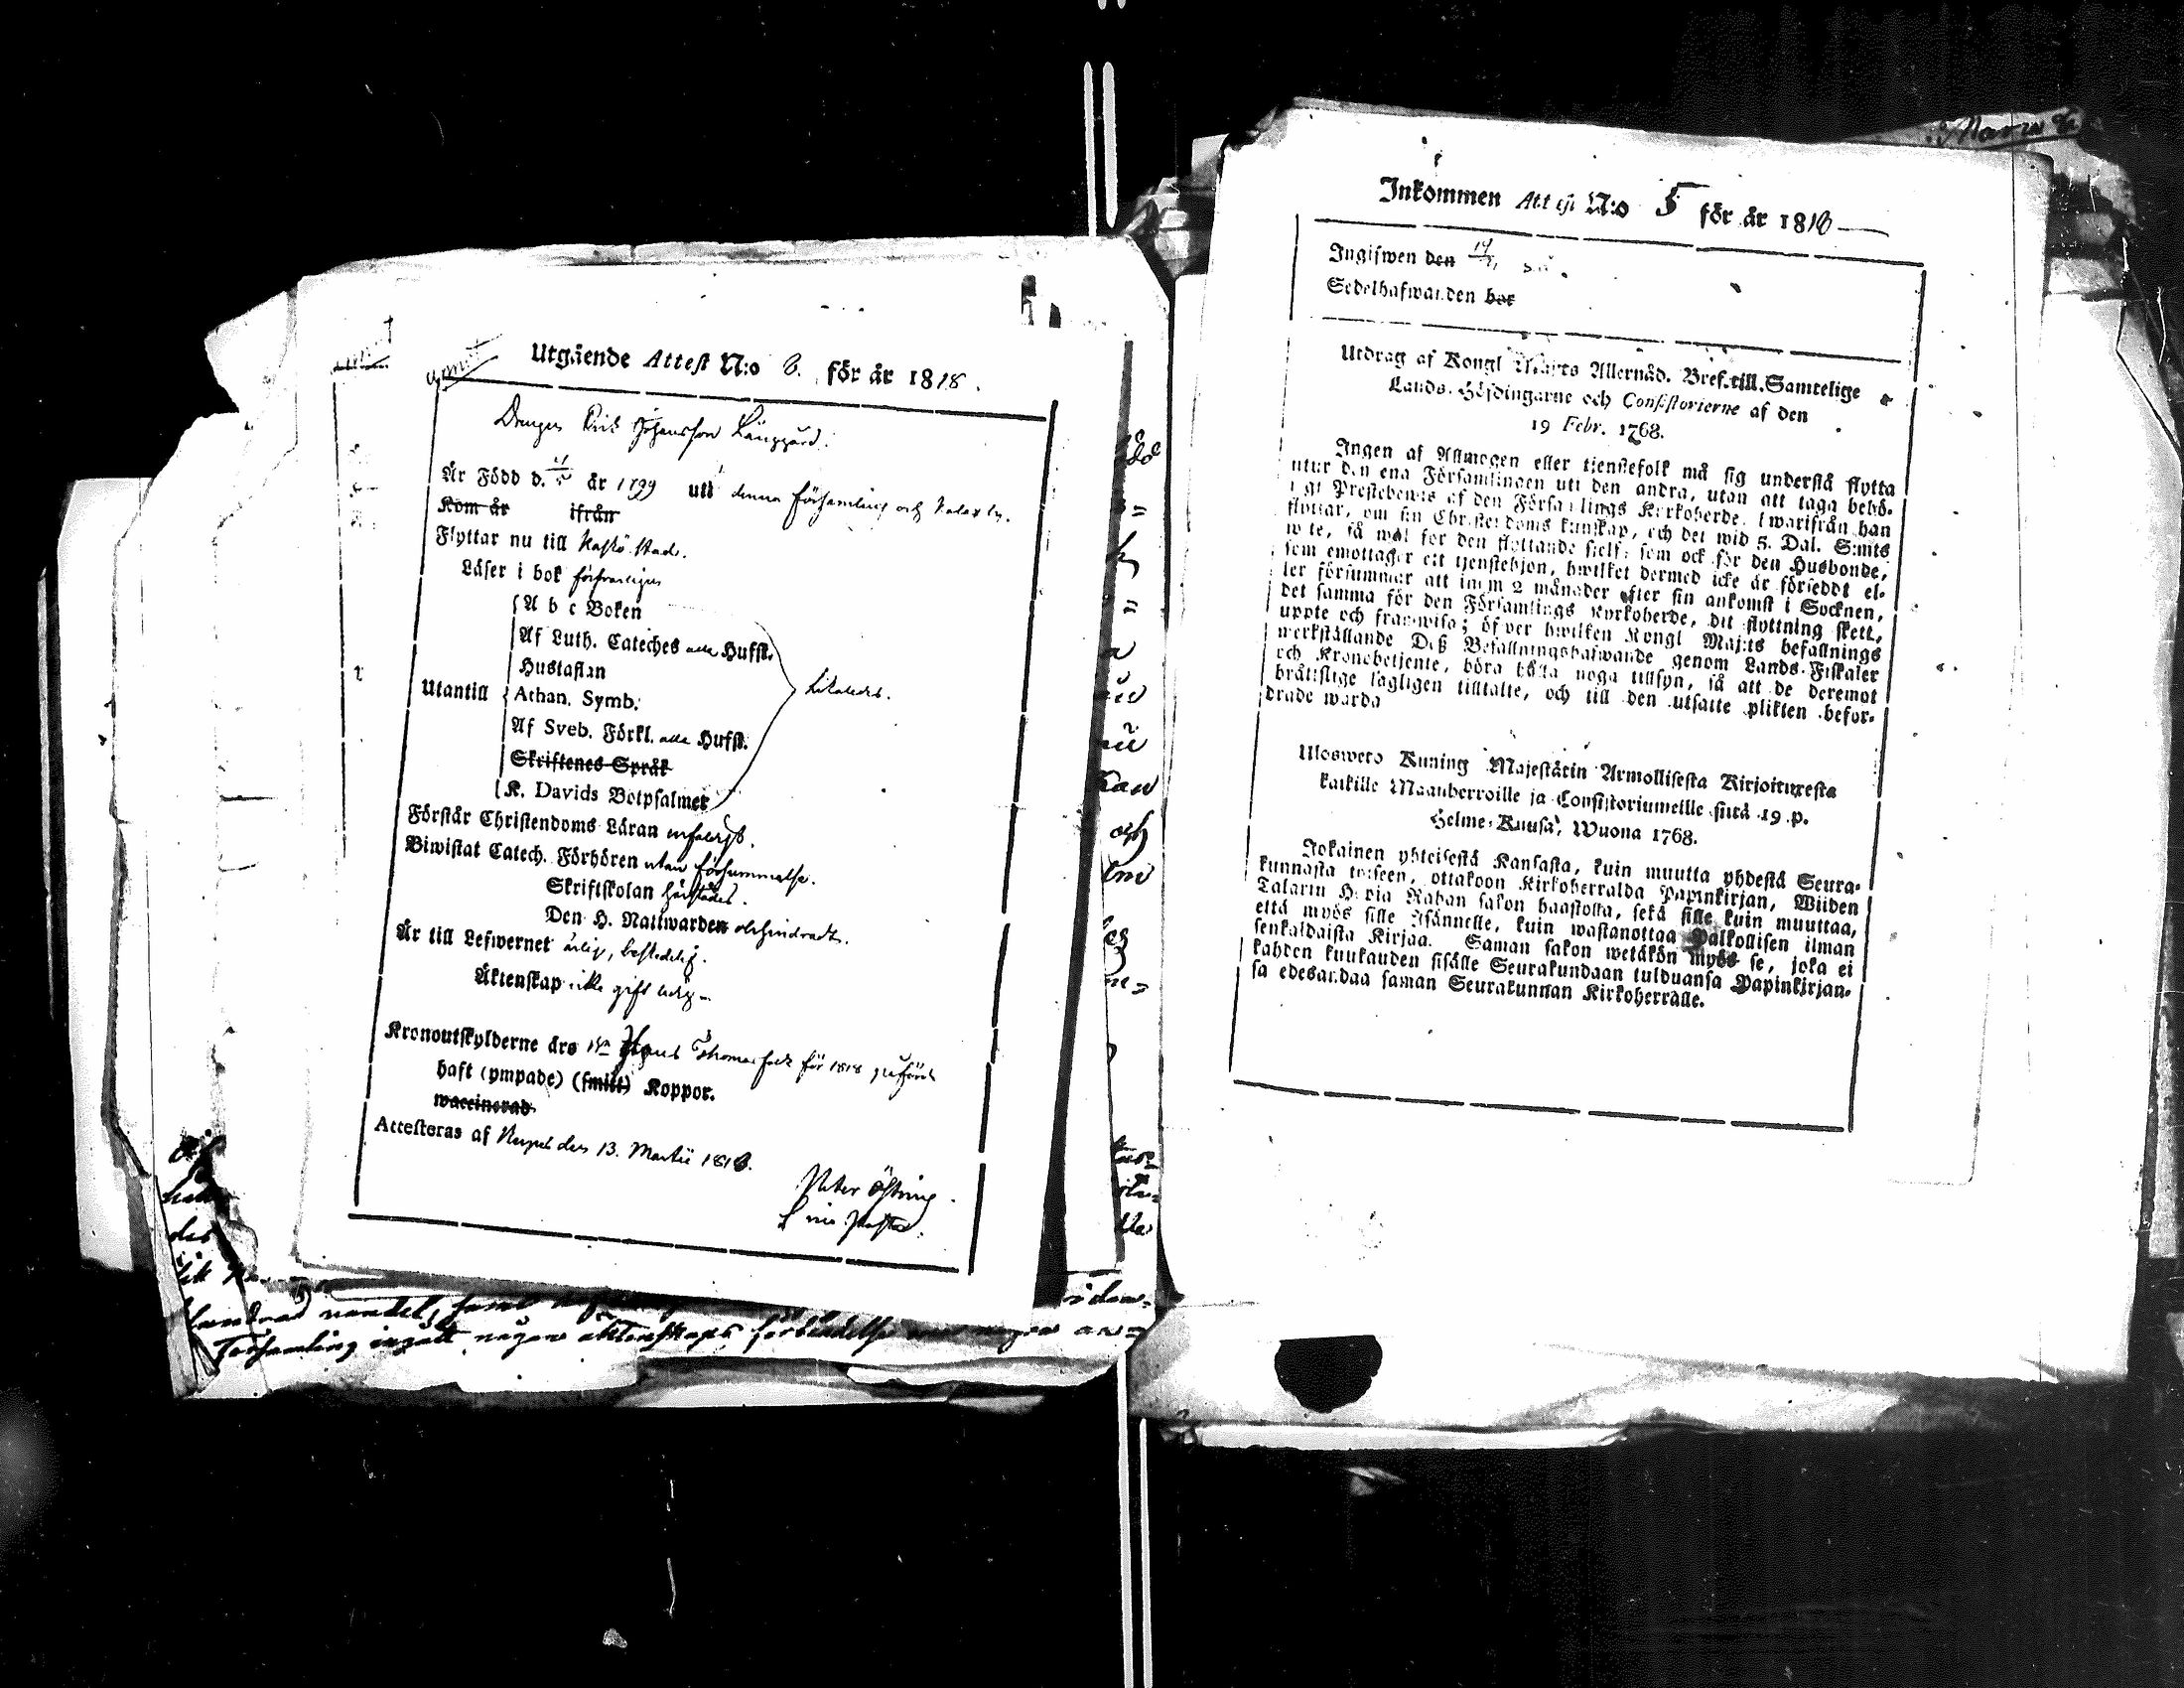 Utgående Attest N:o 6. för år 1818.
Drengen Erik Johansson Långgård.
Är Född d. 4/5 år 1799 uti denna församling och Kalax by.
Kom år ifrån
Flyttar nu till Kaskö stad.
Läser i bok försvarligen
A b c Boken
Af Luth. Cateches alla Hufst.
Hustaflan
Utantill Athan. Symb.
likaledes.
Af Sveb. Förkl. alla Hufst.
Skriftenes Språk
K. Davids Botpsalmer
Förstår Christendoms Läran
Biwistat Catech. Förhören utan försummelse.
Skriftskolan härstädes.
Den H. Nattwarden obehindradt.
Är till Lefwernet ärlig, beskedelig.
Äktenskap icke gift
Kronoutskylderne års för 1818
haft (ympade) (smitt) Koppor.
waccinerad
Attesteras af den 13. Martii 1818.
Peter
Församling ingått någon äktenskaps förbindelse
Inkommen Attest N:o 5 för år 1818
Ingifwen den
Sedelhafwanden bor
Utdrag af Kongl Maj:ts Allernåd. Bref till Samtelige
Lands-Höfdingarne och Consistorierne af den
19 Febr. 1768.
Ingen af Allmogen eller tjenstefolk må sig understå flytta
utur den ena Församlingen uti den andra, utan att taga behö-
rigt Prestebewis af den Församlings Kyrkoherde, hwarifrån han
flyttar, om sin Christendoms kunskap, och det wid 5. Dal. S:mts
wite, så wäl för den flyttande sielf, som ock för den Husbonde,
som emottager ett tjenstehjon, hwilket dermed icke är försedt el-
ler försummar att inom 2 månader efter sin ankomst i Socknen,
det samma för den Församlings Kyrkoherde, dit flyttning skett,
uppte och framwisa; öfver hwilken Kongl Maj:ts befallnings
werkställande Deß Befallningshafwande genom Lands-Fiskaler
och Kronobetjente, böra hålla noga tillsyn, så att de deremot
bråtslige lagligen tilltalte, och till den utsatte plikten befor-
drade warda
Ulosweto Kuning Majestätin Armollisesta Kirjoituxesta
kaikille Maanherroille ja Consistoriumeille siitä 19 p.
Helme-Kuusa, Wuona 1768.
Jokainen yhteisestä Kansasta, kuin muutta yhdestä Seura-
kunnasta toiseen, ottakoon Kirkoherralda Papinkirjan, Wiiden
Talarin Hopia Rahan sakon haastolla, sekä sille kuin muuttaa,
että myös sille Isännelle, kuin wastanottaa Palkollisen ilman
senkaldaista Kirjaa. Saman sakon wetäkön myös se, joka ei
kahden kuukauden sisälle Seurakundaan tulduansa Papinkirjan-
sa edesandaa saman Seurakunnan Kirkoherralle.